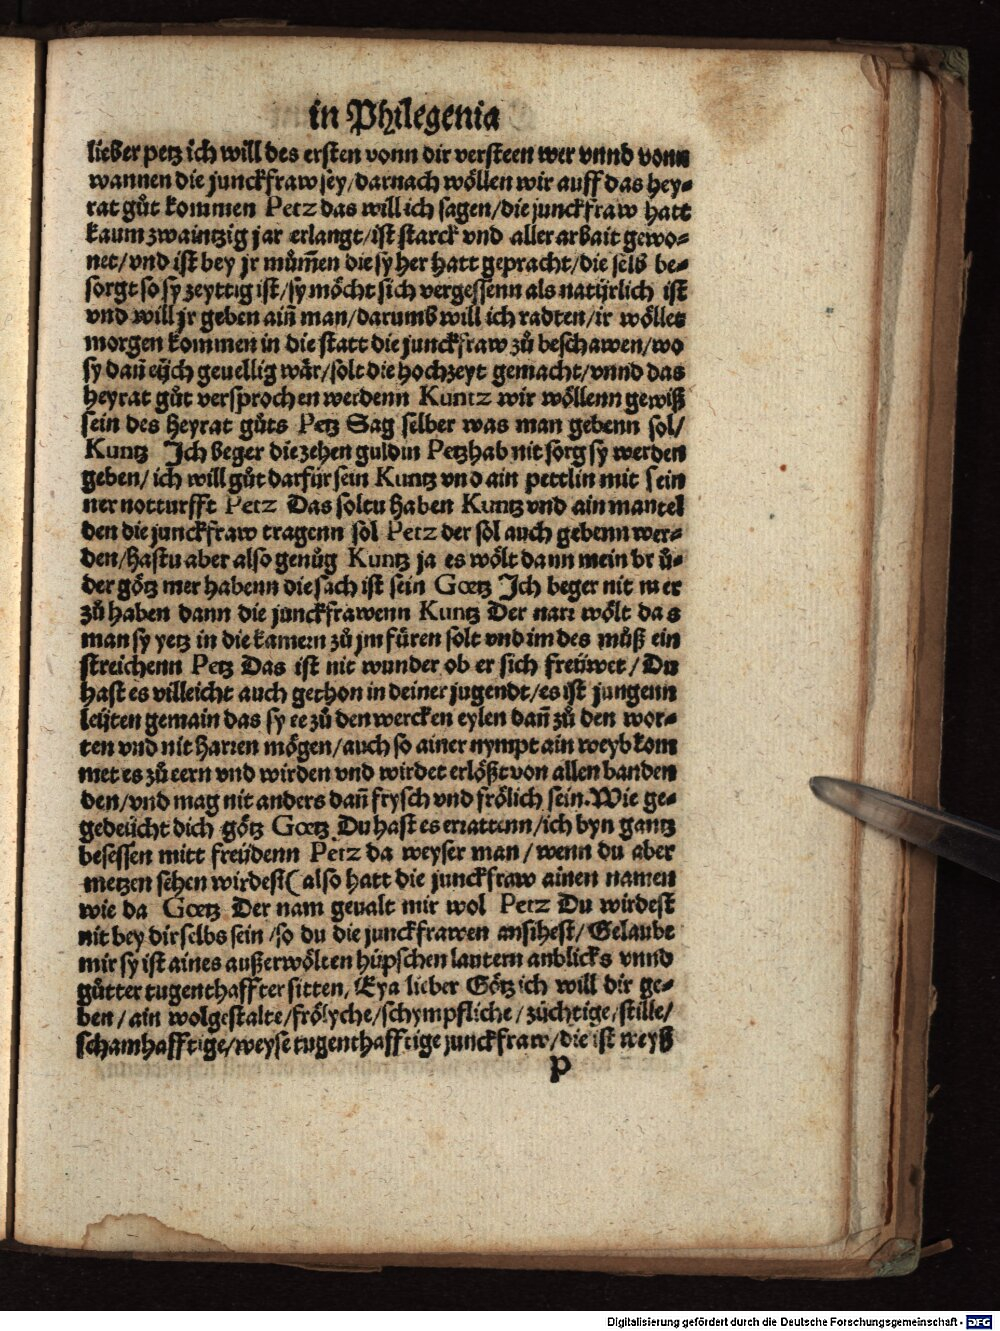 in Philegenia
lieber petz ich will des ersten vonn dir versteen wer vnnd vonn
wannen die junckfraw sey/darnach wöllen wir auff das hey-
rat gůt kommen Petz das will ich sagen/die junckfraw hatt
kaum zwaintzig jar erlangt/ist starck vnd aller arbait gewo-
net/vnd ist bey jr mům̃en die sy her hatt gepracht/die selb be-
sorgt so sy zeyttig ist/sy möcht sich vergessenn als natürlich ist
vnd will jr geben ain̄ man/darumb will ich radten/ir wölles
morgen kommen in die statt die junckfraw zů beschawen/wo
sy dan̄ eüch geuellig wär/solt die hochzeyt gemacht/vnnd das
heyrat gůt versprochen werdenn Kuntz wir wöllenn gewiß
sein des heyrat gůts Petz Sag selber was man gebenn sol/
Kuntz Jch beger die zehen guldin Petz hab nit sorg sy werden
geben/ ich will gůt darfür sein Kuntz vnd ain pettlin mit sein
ner notturfft Petz Das soltu haben Kuntz vnd ain mantel
den die junckfraw tragenn sol Petz der sol auch gebenn wer-
den/hastu aber also genůg Kuntz ja es wölt dann mein brů-
der götz mer habenn die sach ist sein Gœtz Jch beger nit mer
zů haben dann die junckfrawenn Kuntz Der narr wölt das
man sy yetz in die kamern zů jm füren solt vnd im des můß ein
streichenn Petz Das ist nit wunder ob er sich freüwet/ Du
hast es villeicht auch gethon in deiner jugendt/es ist jungenn
leüten gemain das sy ee zů den wercken eylen dan̄ zů den wor-
ten vnd nit harren mögen/auch so ainer nympt ain weyb kom
met es zů eern vnd wirden vnd wirdet erlößt von allen banden
den/vnd mag nit anders dan̄ frysch vnd frölich sein. Wie ge-
gedeücht dich götz Gœtz Du hast es erratten/ich byn gantz
besessen mitt freüdenn Petz da weyser man/wenn du aber
metzen sehen wirdest(also hatt die junckfraw ainen namen
wie da Gœtz Der nam geualt mir wol Petz Du wirdest
nit bey dir selbs sein/so du die junckfrawen ansihest/ Gelaube
mir sy ist aines außerwölten hüpschen lautern anblicks vnnd
gůtter tugenthaffter sitten, Eya lieber Götz ich will dir ge-
ben/ain wolgestalte/frölyche/schympfliche/züchtige/stille/
schamhafftige/weyse tugenthafftige junckfraw/die ist weyß
P
Digitalisierung gefördert durch die Deutsche Forschungsgemeinschaft - DFG